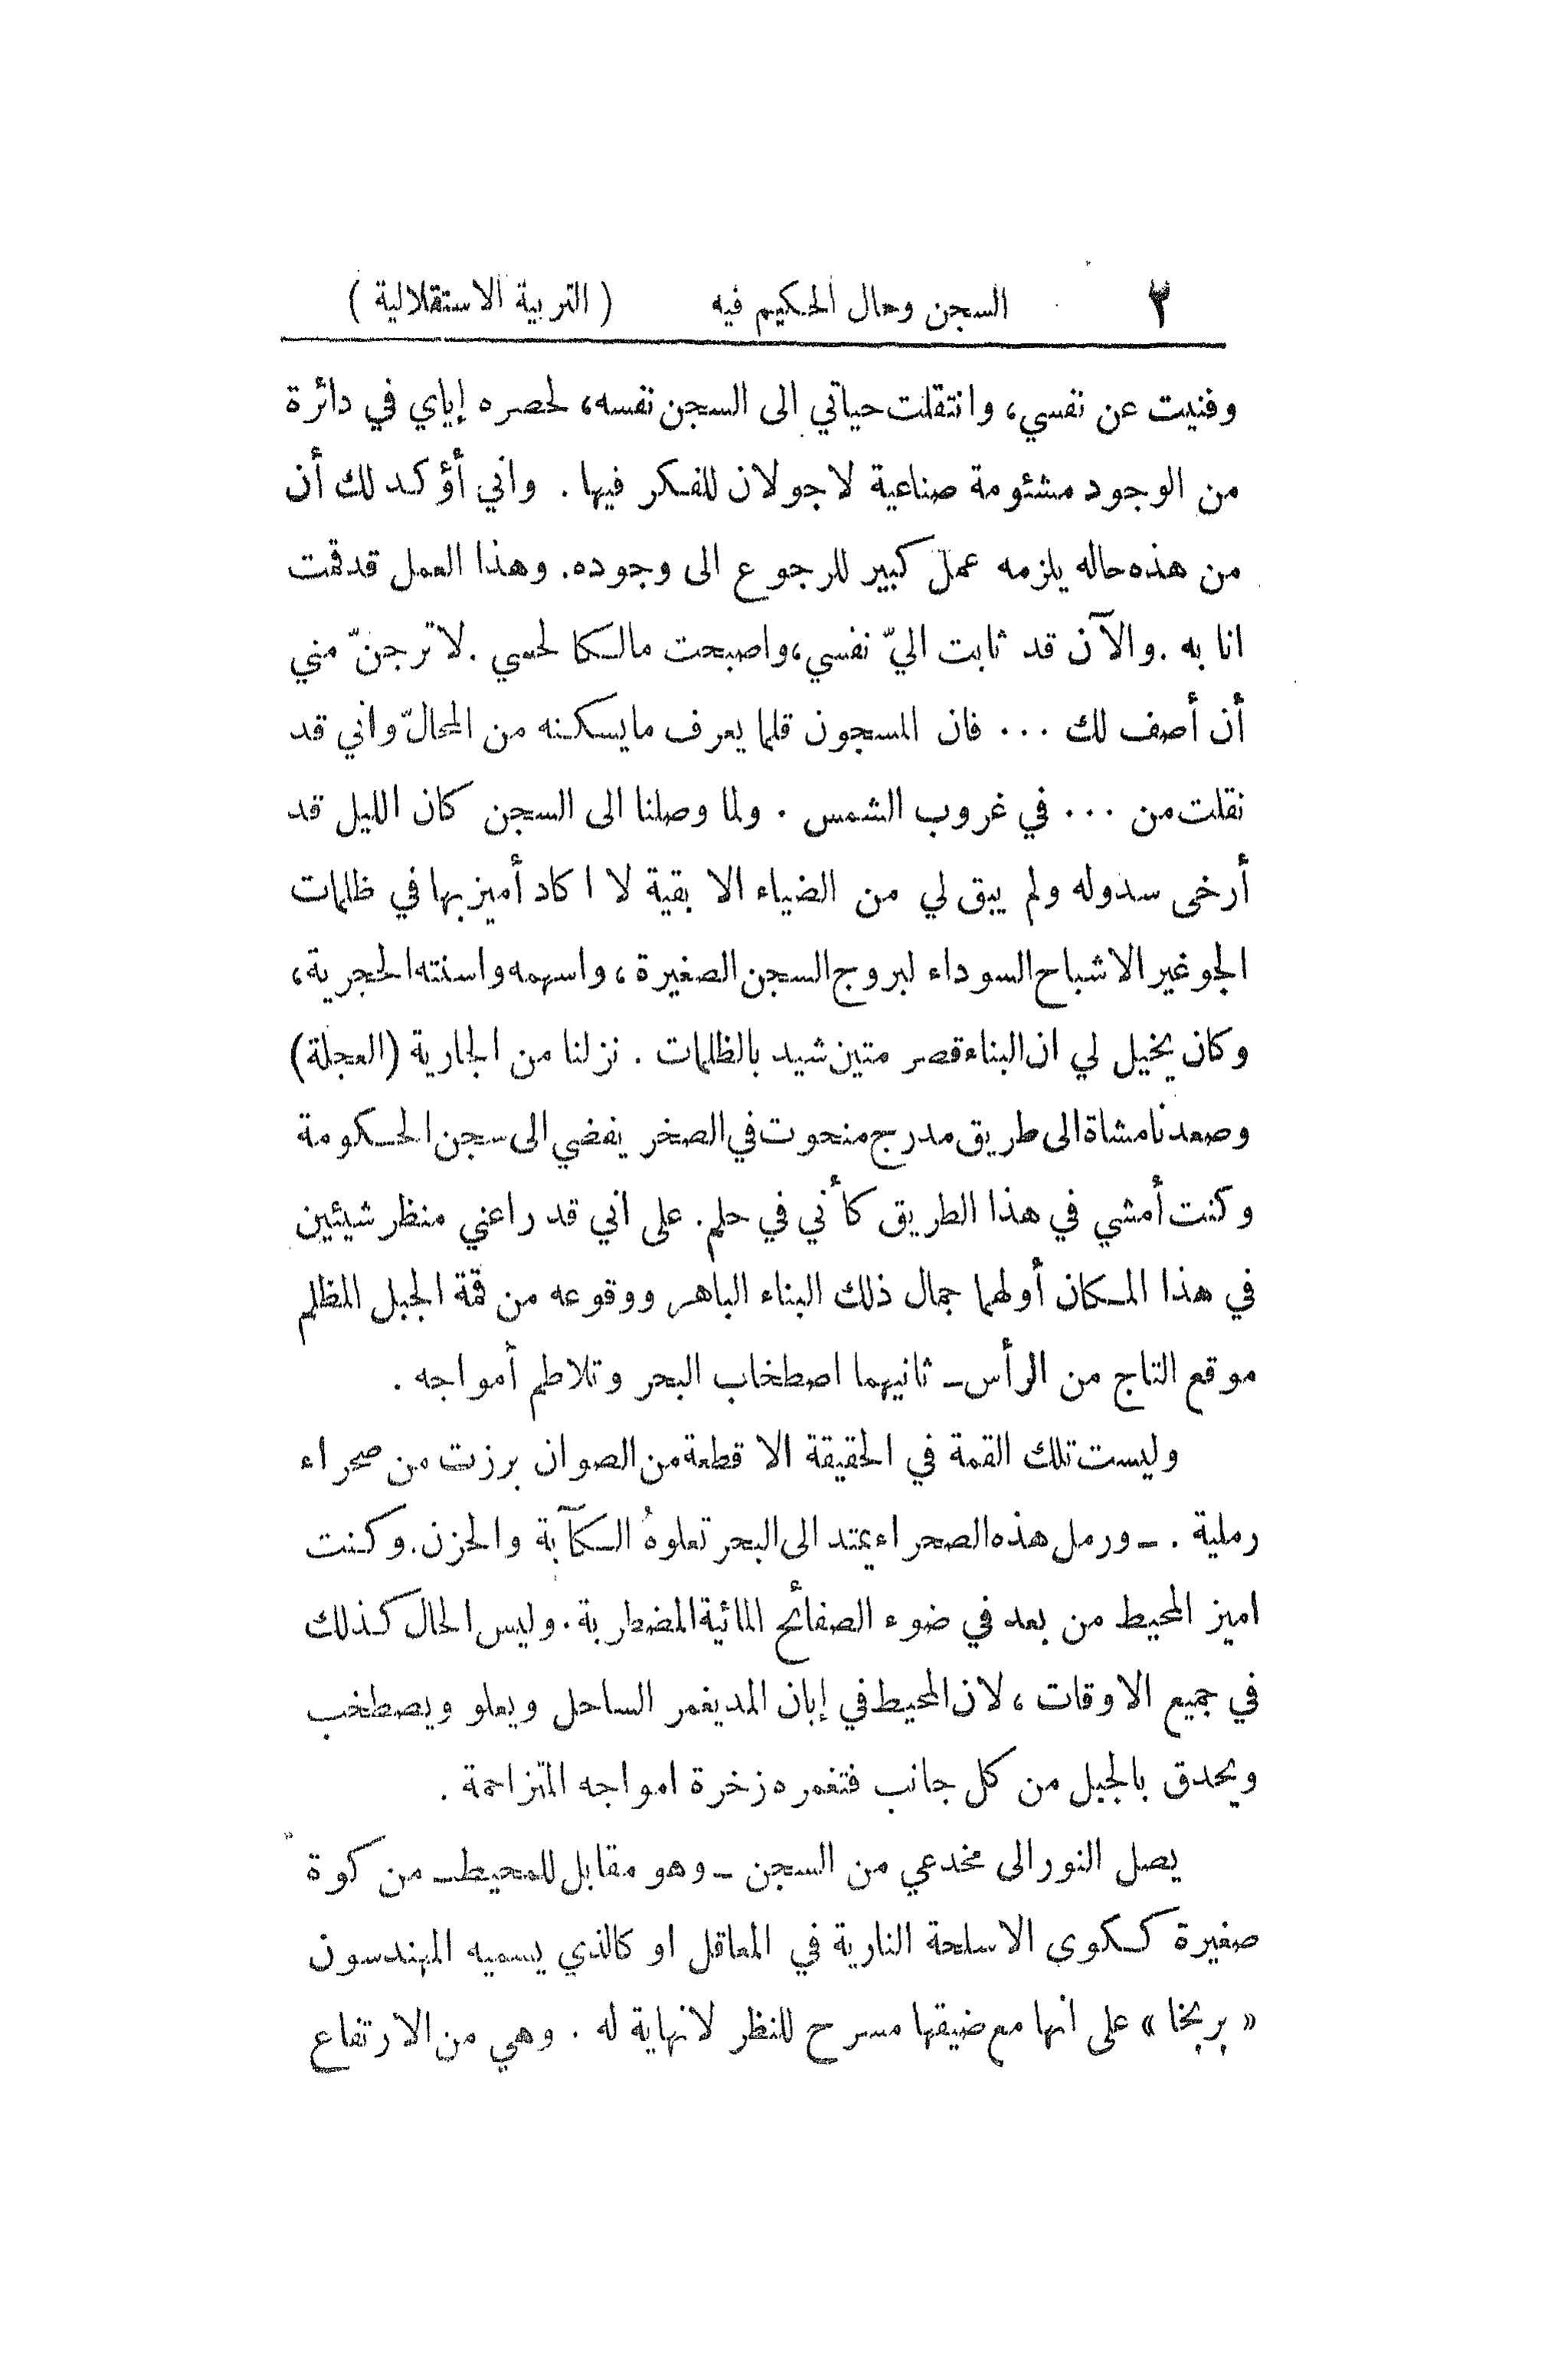 ٢ السجن وحال الحكيم فيه ( التربية الاستقلالية )
وفنيت عن نفسي، وانتقلت حياتي الى السجن نفسه، لحصره إياي في دائرة
من الوجود مشئومة صناعية لا جولان للفكر فيها . واني أؤكد لك أن
من هذه حاله يلزمه عمل كبير للرجوع الى وجوده. وهذا العمل قد قمت
انا به .والآن قد ثابت اليّ نفسي،واصبحت مالكا لحسي .لا ترجنّ مني
أن أصف لك ... فان المسجون قلما يعرف ما يسكنه من المحالّ واني قد
نقلت من ... في غروب الشمس . ولما وصلنا الى السجن كان الليل قد
أرخى سدوله ولم يبق لي من الضياء الا بقية لا اكاد أميز بها في ظلمات
الجو غير الاشباح السوداء لبروج السجن الصغيرة ، واسهمه واسنته الحجرية،
وكان يخيل لي ان البناء قصر متين شيد بالظلمات . نزلنا من الجارية (العجلة)
وصعدنا مشاة الى طريق مدرج منحوت في الصخر يفضي الى سجن الحكومة
وكنت أمشي في هذا الطريق كأني في حلم. على اني قد راعني منظر شيئين
في هذا المكان أولهما جمال ذلك البناء الباهر ووقوعه من قمة الجبل المظلم
موقع التاج من الرأس ــ ثانيهما اصطخاب البحر وتلاطم أمواجه .
وليست تلك القمة في الحقيقة الا قطعة من الصوان برزت من صحراء
رملية . ــ ورمل هذه الصحراء يمتد الى البحر تعلوهُ الكآبة والحزن. وكنت
اميز المحيط من بعد في ضوء الصفائح المائية المضطربة. وليس الحال كذلك
في جميع الاوقات ، لان المحيط في إبان المد يغمر الساحل ويعلو ويصطخب
ويحدق بالجبل من كل جانب فتغمره زخرة امواجه المتزاحمة .
يصل النور الى مخدعي من السجن ــ وهو مقابل للمحيط ــ من كوة
صغيرة ككوى الاسلحة النارية في المعاقل او كالذي يسميه المهندسون
« بربخا » على انها مع ضيقها مسرح للنظر لا نهاية له . وهي من الارتفاع